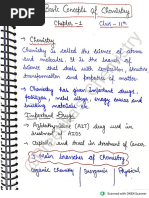 Basic Concepts of Chemistry
Chapter - 1 Class - 11th
→ Chemistry
Chemistry is called the science of atoms
and molecules. It is the branch of
science that deals with composition structure
transformation and properties of matter.
→ Chemistry has given important drugs,
fertilizers, metal alloys, energy sources and
building materials etc.
Important Drugs
→ (AZT) drug used in
treatment of AIDS
→ Cisplatin and taxol in treatment of Cancer.
3 main branches of Chemistry
Organic Chemistry Inorganic Physical
Scanned with OKEN Scanner